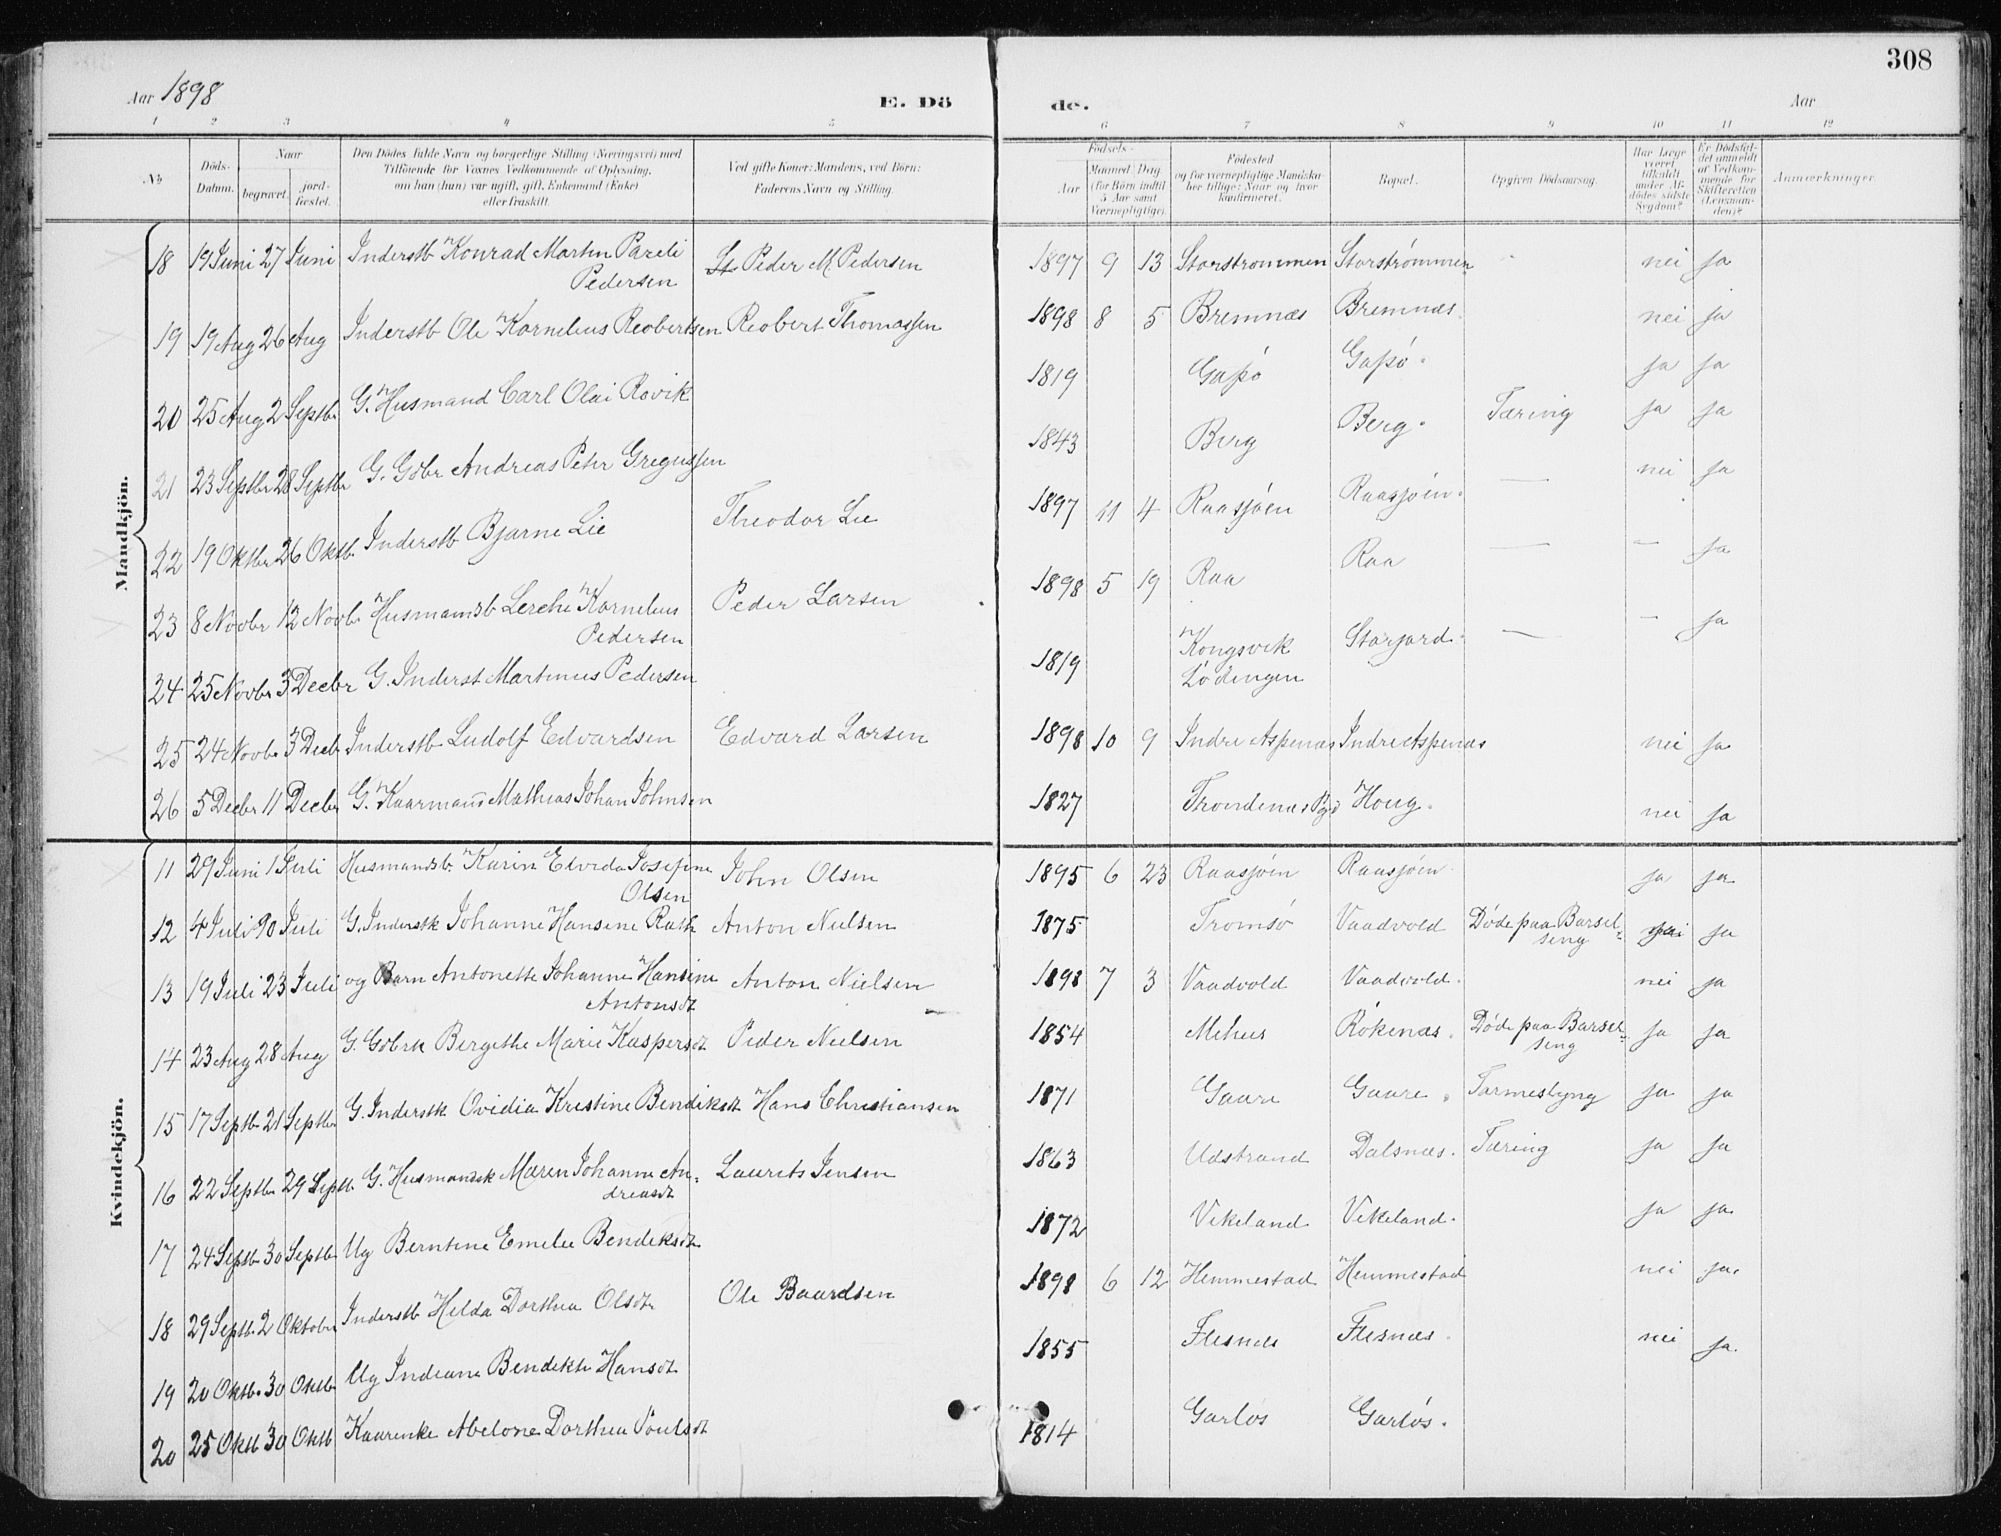 308
Aar 1898
E. Dö
de.
Aar
1 2 3 4 5 6 7 8 9 10 11 12
No
Döds-
Datum.
Naar
begravet.
jord-
fæstet.
Den Dödes fulde Navn og borgerlige Stilling (Næringsvei) med
Tilföiende for Voxnes Vedkommende af Oplysning,
om han (hun) var ugift, gift, Enkemand (Enke)
eller fraskilt.
Ved gifte Koner: Mandens, ved Börn:
Faderens Navn og Stilling.
Födsels-
Aar
Maaned Dag.
(for Börn indtil
5 Aar samt
Værnepligtige).
Födested
og for værnepligtige Mandska-
ber tillige: Naar og hvor
konfirmeret.
Bopæl.
Opgiven Dödsaarsag.
Har Læge
været
tilkaldt
under Af-
dödes sidste
Sygdom?
Er Dödsfal-
det anmeldt
af Vedkom-
mende for
Skifteretten
(Lensman-
den)?
Anmærkninger.
Mandkjön.
18 19 Juni 27 Juni Inderstb Konrad Martin Pareli St Peder M. Pedersen 1897 9 13 Storstrommen Storstrømmen nei ja
Pedersen
19 19 Aug 26 Aug Inderstb Ole Kornelius Reobertsen Reobert Thomassen 1898 8 5 Bremnæs Bremnæs. nei ja
20 25 Aug 2 Septbr G. Husmand Carl Olai Rovik 1819 Gapø Gapø. ja ja
21 23 Septbr 28 Septbr G. Gbbr Andreas Peter Gregussen 1843 Berg Berg. Tæring ja ja
22 19 Oktbr 26 Oktb. Inderstb Bjarne Lie Theodor Lie 1897 11 4 Raasjøen Raasjøen. — nei ja
23 8 Novbr 12 Novbr Husmandsb Lerche Kornelius Peder Larsen 1898 5 19 Raa Raa — — ja
Pedersen
24 25 Novbr 3 Decbr G. Inderst Martinus Pedersen 1819 Kongsvik Storjord. — - ja
Lødingen
25 24 Novbr 3 Decb Inderstb Ludolf Edvardsen Edvard Larsen 1898 10 9 Indre Aspenæs Indre Aspenæs nei ja
26 5 Decbr 11 Decbr G. Kaarmand Mathias Johan Johnsen 1827 Trondenæs Pgd Houg. nei ja
Kvindekjön.
11 29 Juni 1 Juli Husmandsb. Karin Elvida Josefine John Olsen 1895 6 23 Raasjøen Raasjøen ja ja
Olsen
12 4 Juli 10 Juli G. Inderstk Johanne Hansine Rath Anton Nielsen 1875 Tromsø Vaadvold Døde paa Barsel- nei ja
seng
13 19 Juli 23 Juli og Barn Antonette Johanne Hansine Anton Nielsen 1898 7 3 Vaadvold Vaadvold. nei ja
Antonsdt
14 23 Aug 28 Aug G. Gbbrk Bergithe Marie Kaspersdt Peder Nielsen 1854 Mehus Rokenæs. Døde paa Barsel- ja ja
seng
15 17 Septb 21 Septbr G. Inderstk Ovidia Kristine Bendiksdt Hans Christiansen 1871 Gaare Gaare. Tarmeslyng ja ja
16 22 Septbr 29 Septb G. Husmandsk Maren Johanne An- Laurits Jensen 1863 Udstrand Dalsnæs. Tæring ja ja
dreasdt
17 24 Septb 30 Septb Ug Berntine Emelie Bendiksdt 1872 Vikeland Vikeland. ja ja
18 29 Septb. 2 Oktobr Inderstb Helda Dorthea Olsdtr Ole Baardsen 1898 6 12 Hemmestad Hemmestad nei ja.
19 20 Oktb. 30 Oktb Ug Indiane Bendikte Hansdt 1855 Flesnæs Flesnæs. nei ja.
20 25 Oktb 30 Oktb Kaarenke Abelone Dorthea Poulsdt 1814 Garløs Garløs.